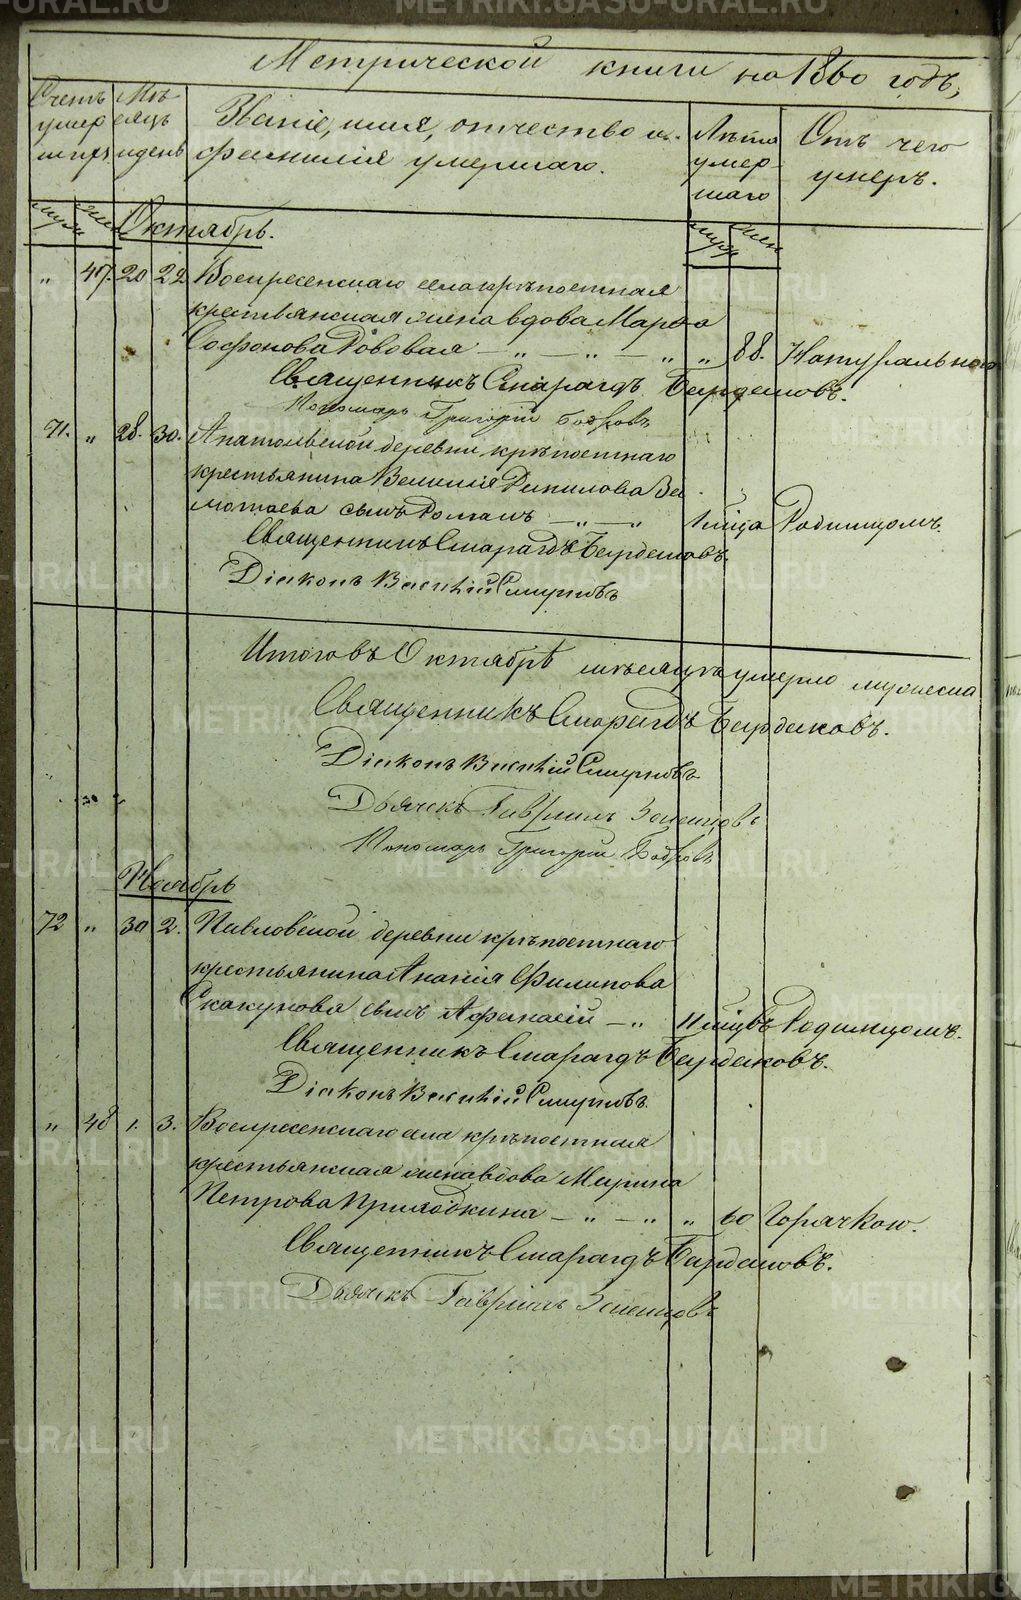 METRIKI.GASO-URAL.RU
Метрической книги на 1860 годъ,
Счетъ умер шихъ
Мѣ сяцъ и день
Званіе, имя, отчество и фамилія умершаго.
Лѣта умер шаго
Отъ чего умеръ.
муж жен
Октябрь.
муж жен
" 47. 20 22 Воскресенскаго села крѣпостная
крестьянская жена вдова Марфа
Софронова " " " " 88. Натурально
Священникъ Смарагдъ Бардаковъ.
Пономарь Григорій Бобровъ
71. " 28. 30. Анатольевской деревни крѣпостнаго
крестьянина Василія Данилова За
мотаева сынъ Романъ " " Родимцомъ.
Священникъ Смарагдъ Бардаковъ.
Діаконъ Василій Смирновъ
Итого въ Октябрѣ мѣсяцѣ умерло мужеска
Священникъ Смарагдъ Бардаковъ.
Діаконъ Василій Смирновъ
Дьячекъ Гавріилъ
Пономарь Григорій Бобровъ
Ноябрь
72 " 30 2. Павловской деревни крѣпостнаго
крестьянина Ананія Филипова
Скакунова сынъ Афанасій " Родимцомъ.
Священникъ Смарагдъ Бардаковъ.
Діаконъ Василій Смирновъ
" 48 1. 3. Воскресенскаго села крѣпостная
крестьянская жена вдова Марина
Петрова " " " 60 Горячкою.
Священникъ Смарагдъ Бардаковъ.
Дьячекъ Гавріилъ
METRIKI.GASO-URAL.RU